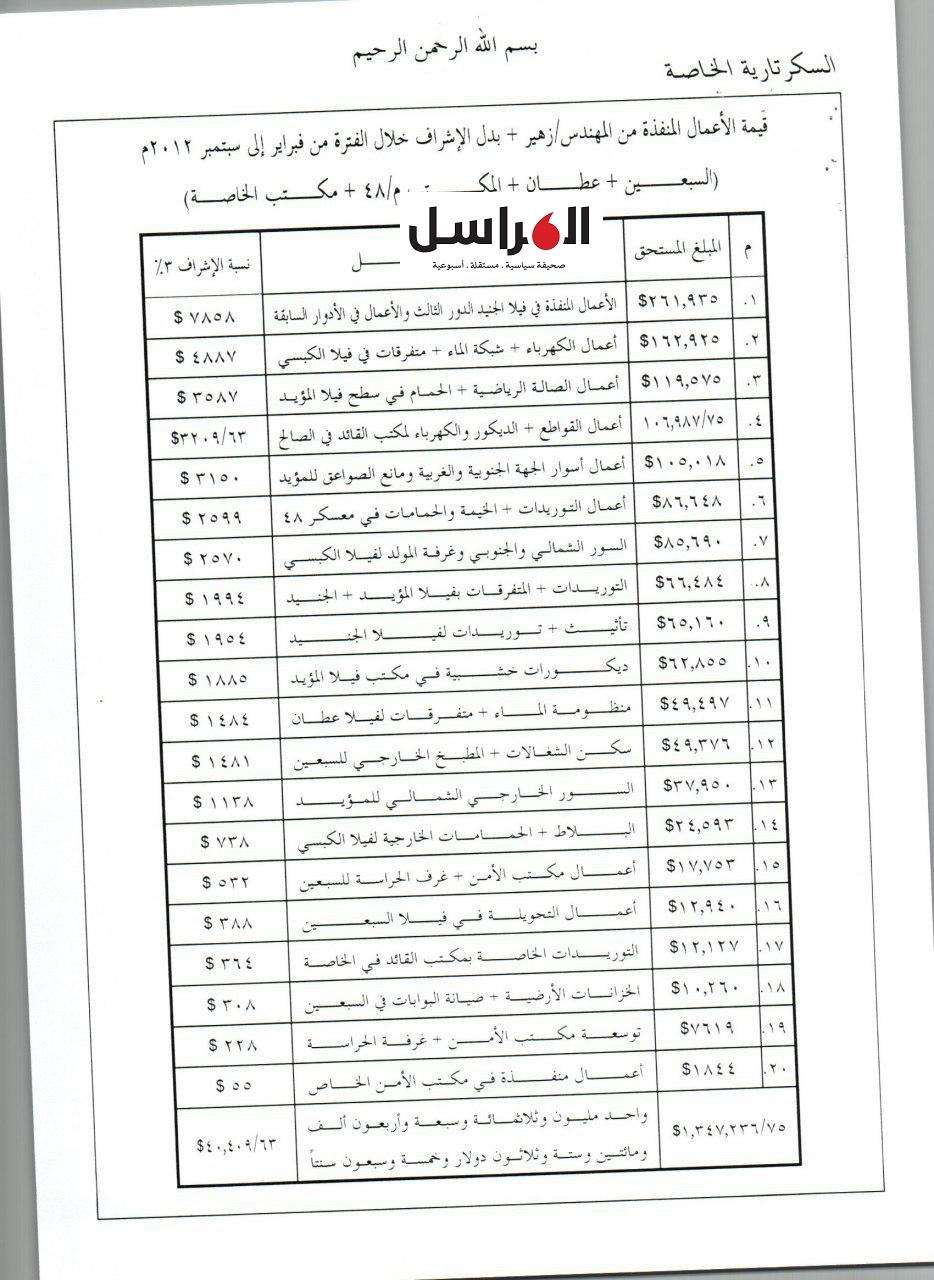 بسم الله الرحمن الرحيم
السكرتارية الخاصة
قيمة الأعمال المنفذة من المهندس/زهير + بدل الإشراف خلال الفترة من فبراير إلى سبتمبر ٢٠١٢م
(السبعـين + عطـان + م/٤٨ + مكـتب الخاصـة)
المراسل
صحيفة سياسية . مستقلة . أسبوعية
م المبلغ المستحق نسبة الإشراف ٣٪
١. $٢٦١,٩٣٥ الأعمال المنفذة في فيلا الجنيد الدور الثالث والأعمال في الأدوار السابقة ٧٨٥٨ $
٢. $١٦٢,٩٢٥ أعمال الكهرباء + شبكة الماء + متفرقات في فيلا الكبسي ٤٨٨٧ $
٣. $١١٩,٥٧٥ أعمال الصالة الرياضية + الحمام في سطح فيلا المؤيد ٣٥٨٧ $
٤. ١٠٦,٩٨٧/٧٥ أعمال القواطع + الديكور والكهرباء لمكتب القائد في الصالح $٣٢٠٩/٦٣
٥. $١٠٥,٠١٨ أعمال أسوار الجهة الجنوبية والغربية ومانع الصواعق للمؤيد ٣١٥٠ $
٦. $٨٦,٦٤٨ أعمال التوريدات + الخيمة والحمامات في معسكر ٤٨ ٢٥٩٩ $
٧. $٨٥,٦٩٠ السور الشمالي والجنوبي وغرفة المولد لفيلا الكبسي ٢٥٧٠ $
٨. $٦٦,٤٨٤ التوريدات + المتفرقات بفيلا المؤيد + الجنيد ١٩٩٤ $
٩. $٦٥,١٦٠ تأثيث + توريدات لفيلا الجنيد ١٩٥٤ $
١٠. $٦٢,٨٥٥ ديكورات خشبية في مكتب فيلا المؤيد ١٨٨٥ $
١١. $٤٩,٤٩٧ منظومة الماء + متفرقات لفيلا عطان ١٤٨٤ $
١٢. $٤٩,٣٧٦ سكن الشغالات + المطبخ الخارجي للسبعين ١٤٨١ $
١٣. $٣٧,٩٥٠ السور الخارجي الشمالي للمؤيد ١١٣٨ $
١٤. $٢٤,٥٩٣ البلاط + الحمامات الخارجية لفيلا الكبسي ٧٣٨ $
١٥. $١٧,٧٥٣ أعمال مكتب الأمن + غرف الحراسة للسبعين ٥٣٢ $
١٦. $١٢,٩٤٠ أعمال التحويلة في فيلا السبعين ٣٨٨ $
١٧. $١٢,١٢٧ التوريدات الخاصة بمكتب القائد في الخاصة ٣٦٤ $
١٨. $١٠,٢٦٠ الخزانات الأرضية + صيانة البوابات في السبعين ٣٠٨ $
١٩. $٧٦١٩ توسعة مكتب الأمن + غرفة الحراسة ٢٢٨ $
٢٠. $١٨٤٤ أعمال منفذة في مكتب الأمن الخاص ٥٥ $
$١,٣٤٧,٢٣٦/٧٥ واحد مليون وثلاثمائة وسبعة وأربعون ألف $٤٠,٤٠٩/٦٣
ومائتين وستة وثلاثون دولار وخمسة وسبعون سنتاً